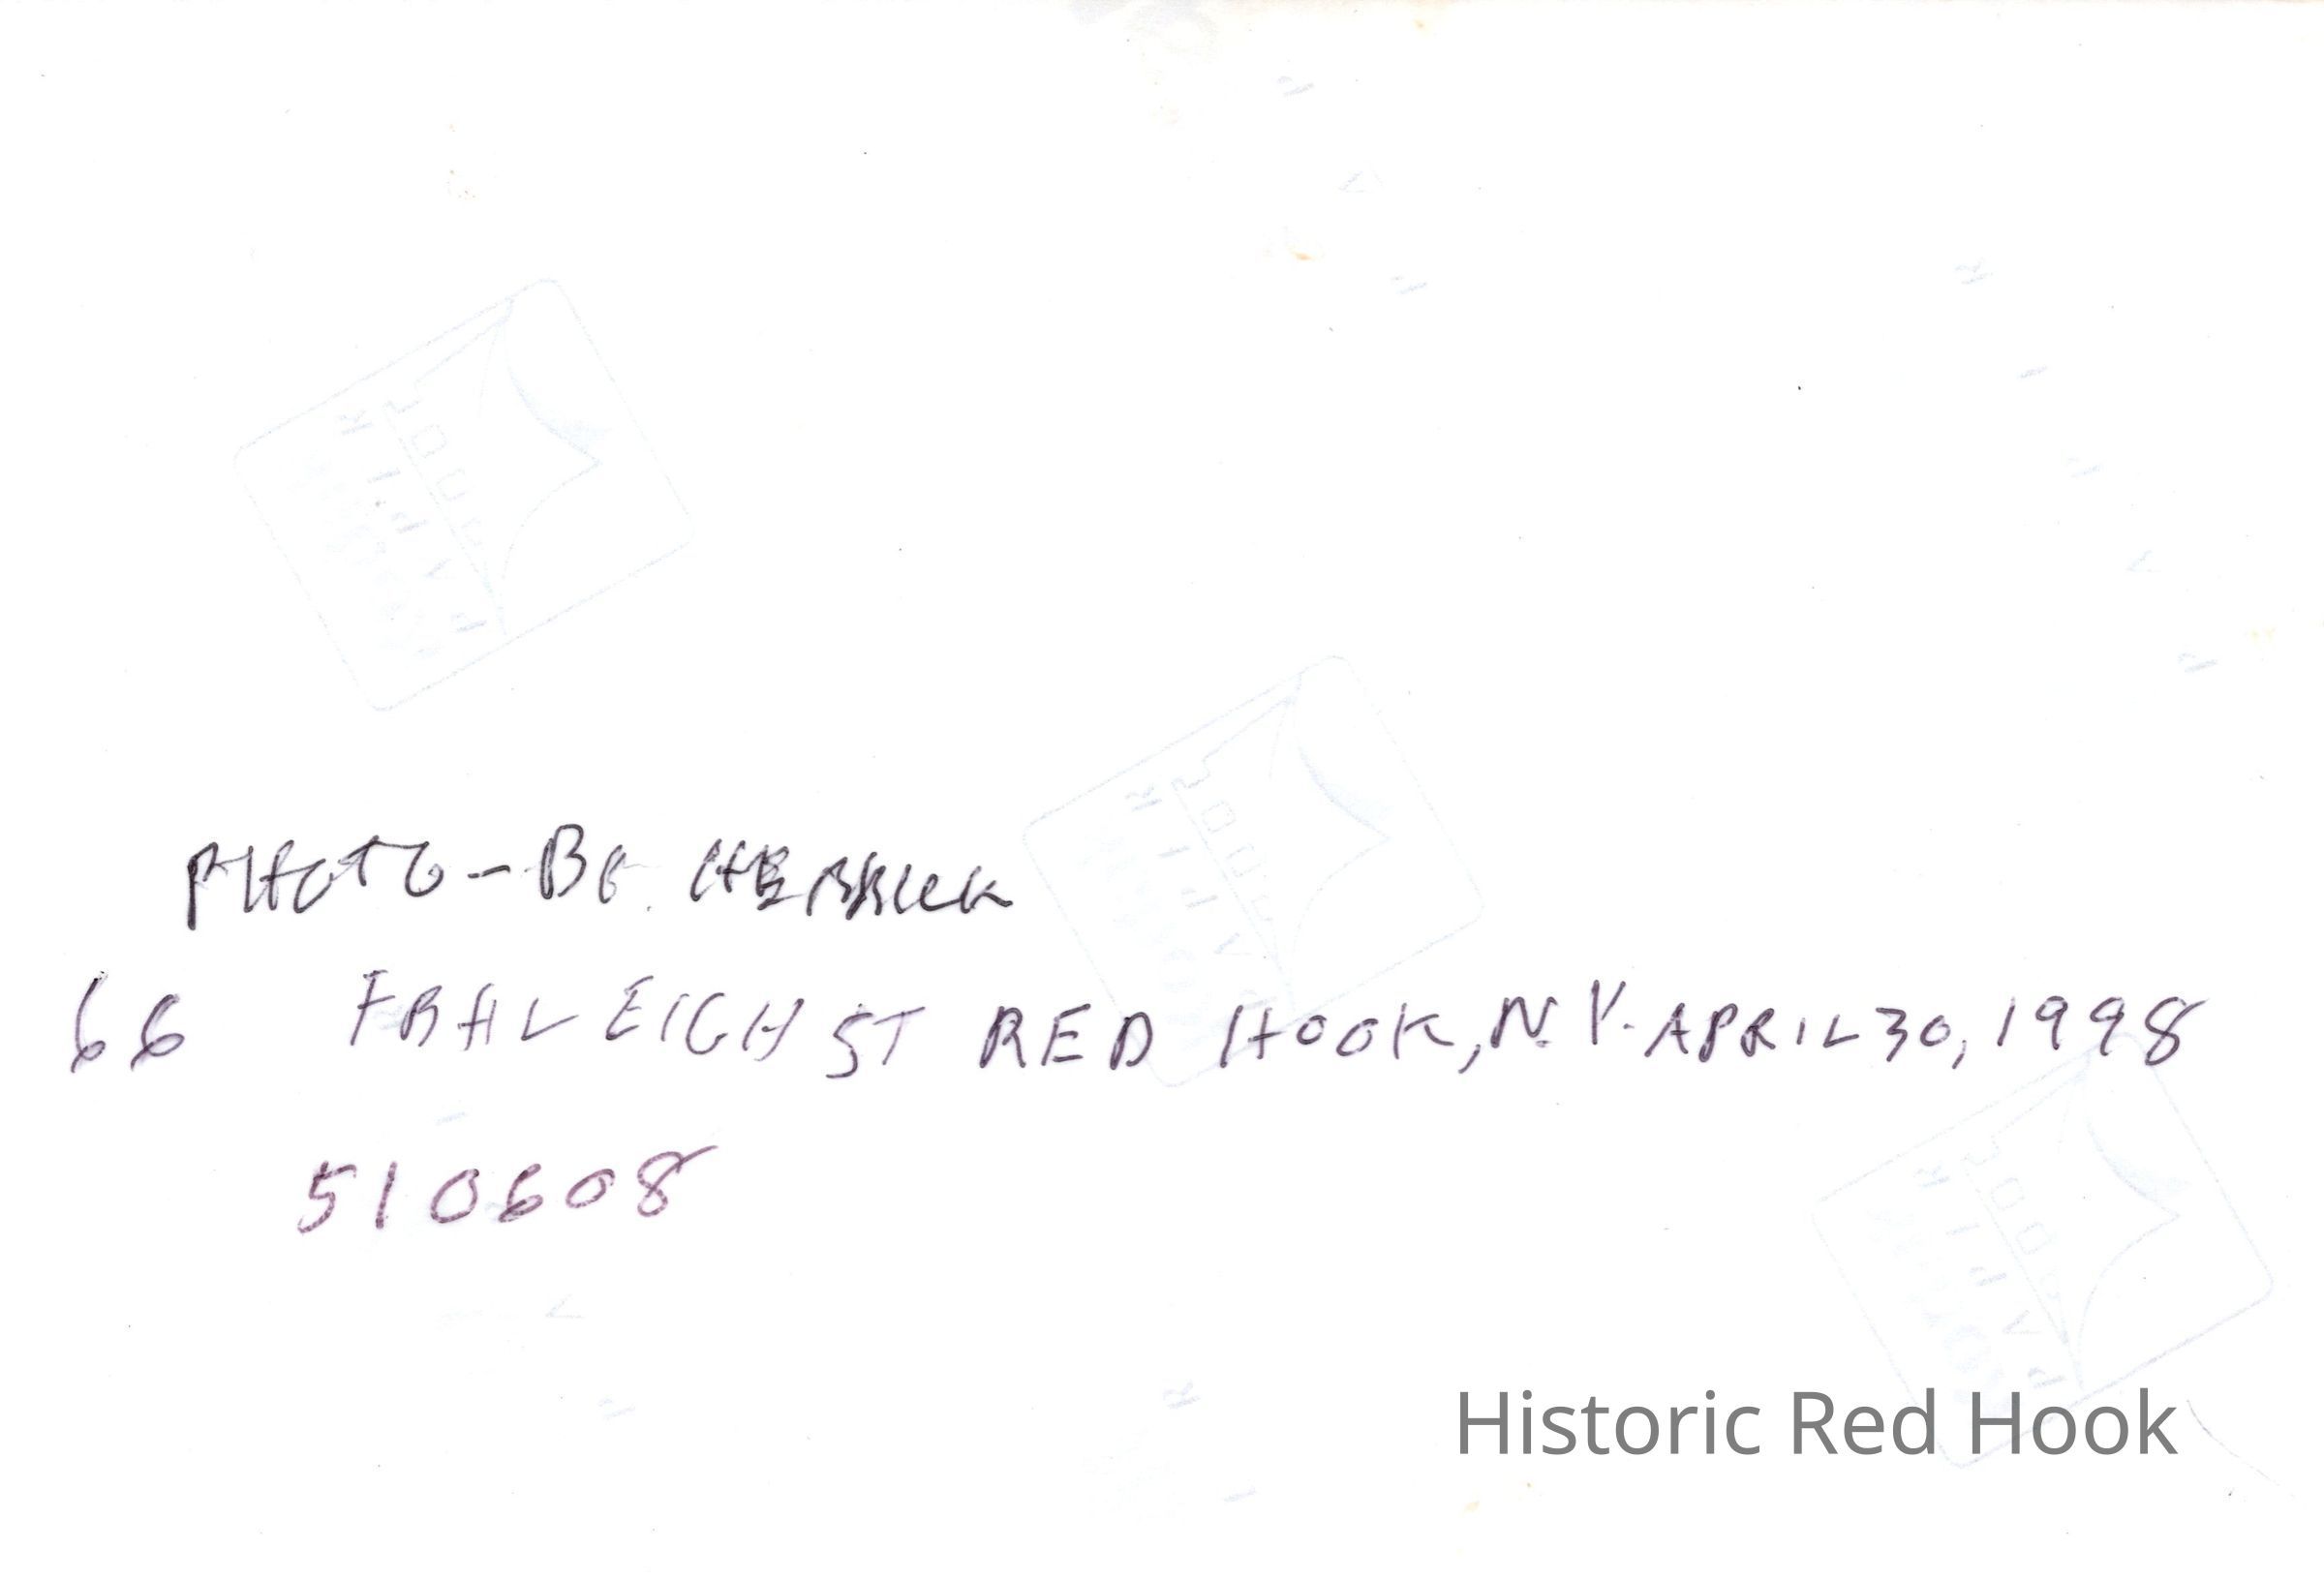 PHOTO - BF. HERRICK
66 FRALEIGH ST RED HOOK, N.Y. APRIL 30, 1998
510608
Historic Red Hook